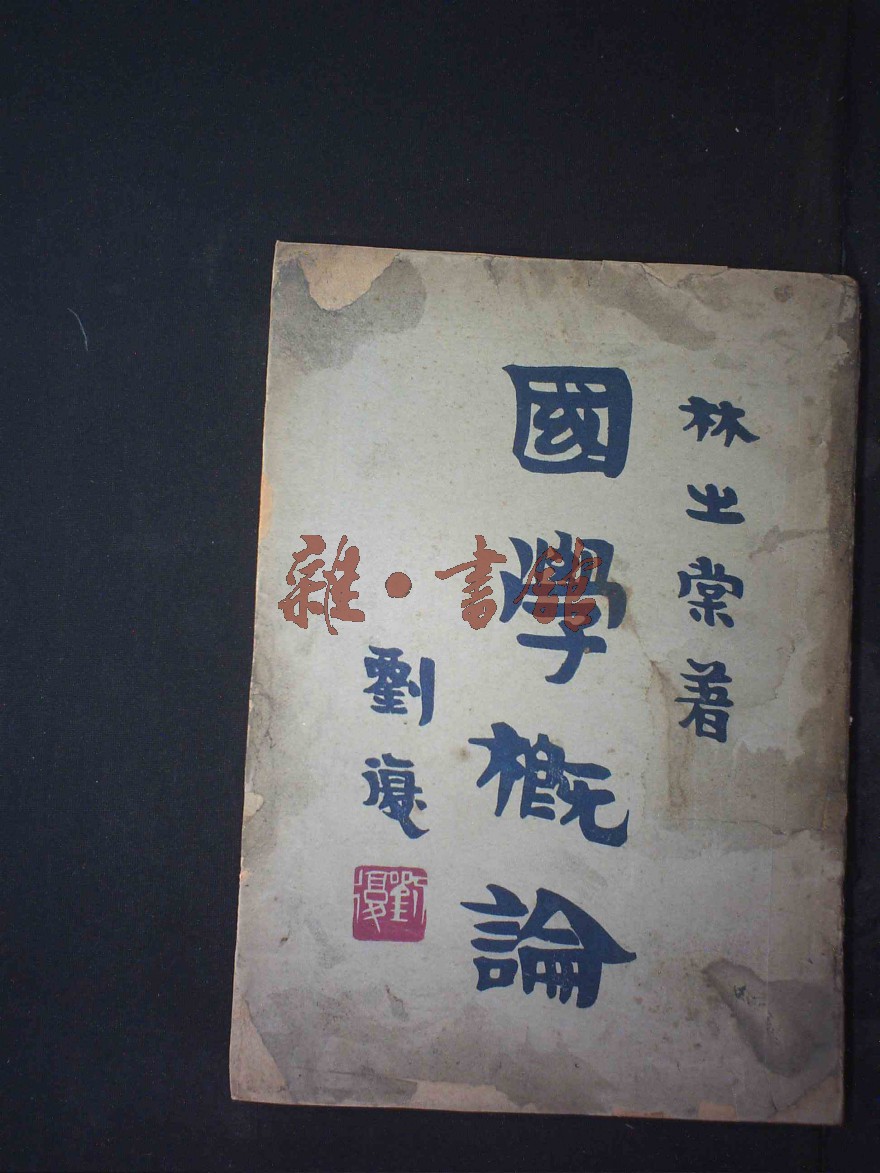 林之棠著
國學概論
劉復
劉復
雜·書館